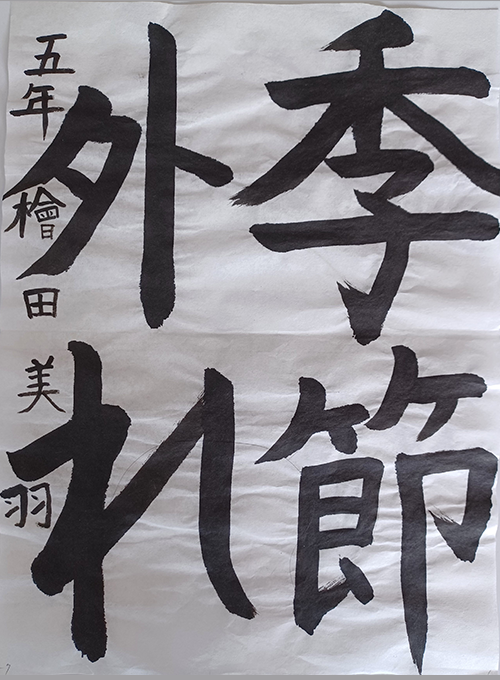 季節
外れ
五年 檜田 美羽